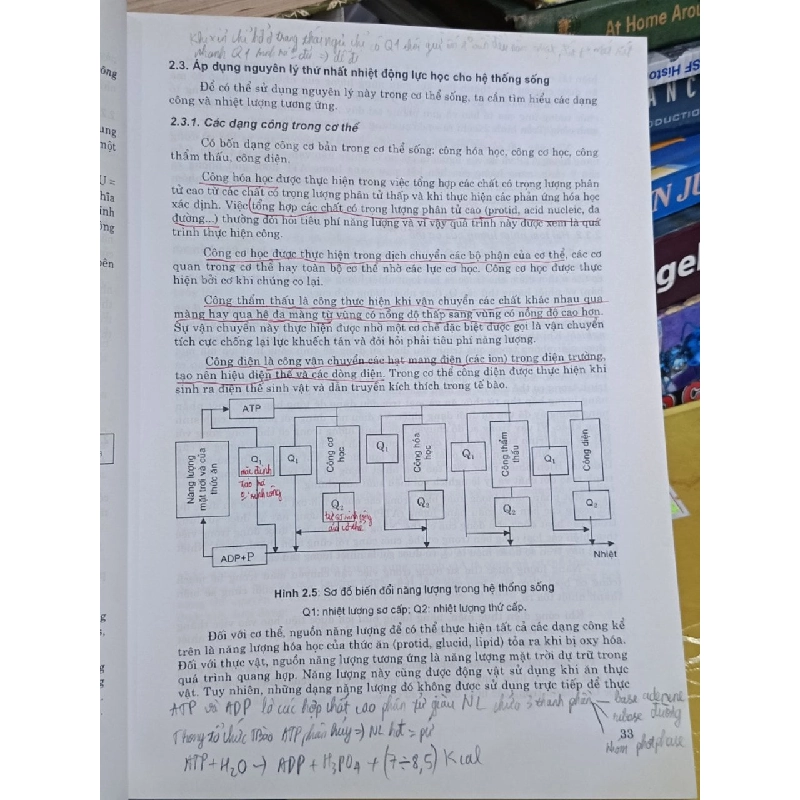 2.3. Áp dụng nguyên lý thứ nhất nhiệt động lực học cho hệ thống sống
Để có thể sử dụng nguyên lý này trong cơ thể sống, ta cần tìm hiểu các dạng
công và nhiệt lượng tương ứng.
2.3.1. Các dạng công trong cơ thể
Có bốn dạng công cơ bản trong cơ thể sống: công hóa học, công cơ học, công
thẩm thấu, công điện.
Công hóa học được thực hiện trong việc tổng hợp các chất có trọng lượng phân
tử cao từ các chất có trọng lượng phân tử thấp và khi thực hiện các phản ứng hóa học
xác định. Việc tổng hợp các chất có trọng lượng phân tử cao (protid, acid nucleic, đa
đường...) thường đòi hỏi tiêu phí năng lượng và vì vậy quá trình này được xem là quá
trình thực hiện công.
Công cơ học được thực hiện trong dịch chuyển các bộ phận của cơ thể, các cơ
quan trong cơ thể hay toàn bộ cơ thể nhờ các lực cơ học. Công cơ học được thực
hiện bởi cơ khi chúng co lại.
Công thẩm thấu là công thực hiện khi vận chuyển các chất khác nhau qua
màng hay qua hệ đa màng từ vùng có nồng độ thấp sang vùng có nồng độ cao hơn.
Sự vận chuyển này thực hiện được nhờ một cơ chế đặc biệt được gọi là vận chuyển
tích cực chống lại lực khuếch tán và đòi hỏi phải tiêu phí năng lượng.
Công điện là công vận chuyển các hạt mang điện (các ion) trong điện trường,
tạo nên hiệu điện thế và các dòng điện. Trong cơ thể công điện được thực hiện khi
sinh ra điện thế sinh vật và dẫn truyền kích thích trong tế bào.
ATP
Năng lượng
mặt trời và của
thức ăn
Q1
Q1
Công cơ
học
Q1
Công hóa
học
Q1
Công thẩm
thấu
Q1
Công điện
Q2
Q2
Q2
Q2
ADP+P
Nhiệt
Hình 2.5: Sơ đồ biến đổi năng lượng trong hệ thống sống
Q1: nhiệt lượng sơ cấp; Q2: nhiệt lượng thứ cấp.
Đối với cơ thể, nguồn năng lượng để có thể thực hiện tất cả các dạng công kể
trên là năng lượng hóa học của thức ăn (protid, glucid, lipid) tỏa ra khi bị oxy hóa.
Đối với thực vật, nguồn năng lượng tương ứng là năng lượng mặt trời dự trữ trong
quá trình quang hợp. Năng lượng này cũng được động vật sử dụng khi ăn thực
vật. Tuy nhiên, những dạng năng lượng đó không được sử dụng trực tiếp để thực
ATP và ADP là các hợp chất cao phân tử giàu NL chứa 3 thành phần
base adenine
ribose đường
nhóm photphase
33
ATP + H2O → ADP + H3PO4 + (7÷8,5) Kcal
At Home Arou
SF Histo
ANC
ODUCTIO
N JU
gel